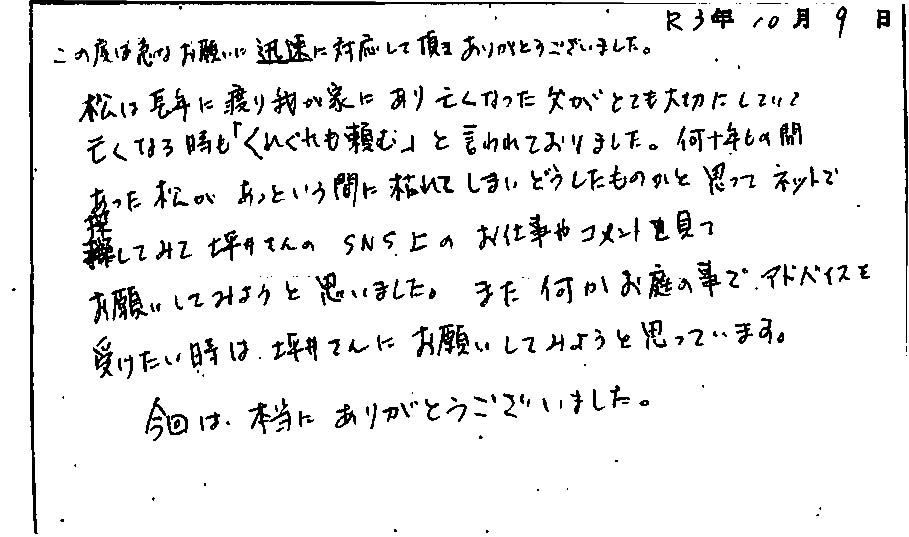 R3年10月9日
この度は急なお願いに迅速に対応して頂きありがとうございました。
松は長年に渡り我が家にあり亡くなった父がとても大切にしていて
亡くなる時も「くれぐれも頼む」と言われておりました。何十年もの間
あった松があっという間に枯れてしまいどうしたものかと思ってネットで
探してみて坪井さんのSNS上のお仕事やコメントを見て
お願いしてみようと思いました。また何かお庭の事で、アドバイスを
受けたい時は、坪井さんにお願いしてみようと思っています。
今回は、本当にありがとうございました。